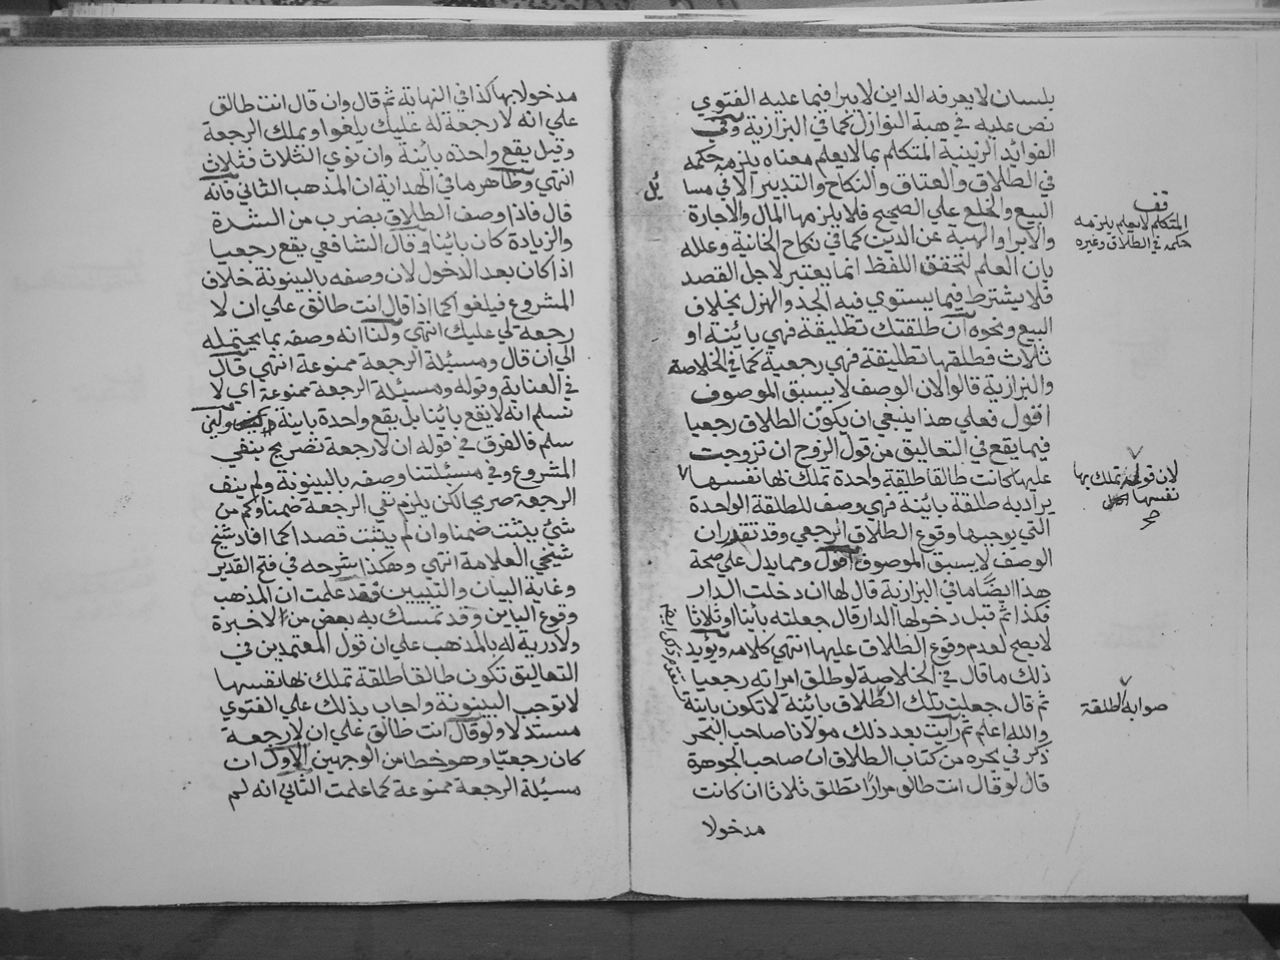 بلسان لا يعرفه الداين لا يبرا فيما عليه الفتوي
نص عليه في هبة النوازل كما في البزازية وفي
الفوائد الزينية المتكلم بما لا يعلم معناه يلزمه حكمه
في الطلاق والعتاق والنكاح والتدبير الا في مسا
ئل
البيع والخلع علي الصحيح فلا يلزمها المال والاجارة
والابرا والهبة عن الدين كما في نكاح الخانية وعلله
بان العلم لتحقق اللفظ انما يعتبر لاجل القصد
فلا يشترط فيما يستوي فيه الجد والهزل بخلاف
البيع ونحوه ان طلقتك تطليقة فهي بائنة او
ثلاث فطلقها تطليقة فهي رجعية كما في الخلاصة
والبزازية قالوا لان الوصف لا يسبق الموصوف
اقول فعلي هذا ينبغي ان يكون الطلاق رجعيا
فيما يقع في التعاليق من قول الزوج ان تزوجت
عليها كانت طالقا طلقة واحدة تملك بها نفسها
يراد به طلقة بائنة فهي وصف للطلقة الواحدة
التي يوجبها وقوع الطلاق الرجعي وقد تقدر ان
الوصف لا يسبق الموصوف اقول ومما يدل علي صحة
هذا ايضا ما في البزازية قال لها ان دخلت الدار
فكذا ثم قبل دخولها الدار قال جعلته بائنا او ثلاثا
لا يصح لعدم وقوع الطلاق عليها انتهي كلامه ويؤيد
ذلك ما قال في الخلاصة لو طلق امراته رجعيا
ثم قال جعلت تلك الطلاق بائنة لا تكون باينة
والله اعلم ثم رايت بعد ذلك مولانا صاحب البحر
ذكر في بحره من كتاب الطلاق ان صاحب الجوهرة
قال لو قال انت طالق مرارا تطلق ثلاثا ان كانت
مدخولا
قف
المتكلم لا يعلم يلزمه
حكمه في الطلاق وغيره
لان قوله تملك بها
نفسها
صح
صوابه الطلقة
مدخولا بها كذا في النهاية ثم قال وان قال انت طالق
علي انه لا رجعة له عليك يلغوا ويملك الرجعة
وقيل يقع واحدة بائنة وان نوي الثلاث فثلاث
انتهي وظاهر ما في الهداية ان المذهب الثاني فانه
قال فاذا وصف الطلاق بضرب من الشدة
والزيادة كان بائنا وقال الشافعي يقع رجعيا
اذا كان بعد الدخول لان وصفه بالبينونة خلاف
المشروع فيلغوا كما اذا قال انت طالق علي ان لا
رجعة لي عليك انتهي ولنا انه وصفه بما يحتمله
الي ان قال ومسئلة الرجعة ممنوعة انتهي قال
في العناية وقوله ومسئلة الرجعة ممنوعة اي لا
نسلم انه لا يقع بائنا بل يقع واحدة باينة ولئن
سلم فالفرق في قوله ان لا رجعة تصريح بنفي
المشروع وفي مسئلتنا وصفه بالبينونة ولم ينف
الرجعة صريحا لكن يلزم نفي الرجعة ضمنا وكم من
شئ يثبت ضمنا وان لم يثبت قصدا كما افاد شيخ
شيخي العلامة انتهي وهكذا شرحه في فتح القدير
وغاية البيان والتبيين فقد علمت ان المذهب
وقوع الباين وقد تمسك به بعض من لا خبرة
ولا درية له بالمذهب علي ان قول المعتمدين في
التعاليق تكون طالقا طلقة تملك بها نفسها
لا توجب البينونة واجاب بذلك علي الفتوي
مستدلا ولو قال انت طالق علي ان لا رجعة
كان رجعيا وهو خطا من الوجهين الاول ان
مسئلة الرجعة ممنوعة كما علمت الثاني انه لم